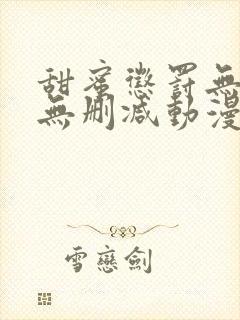 甜蜜懲罰無
無刪減動漫
雪戀劍